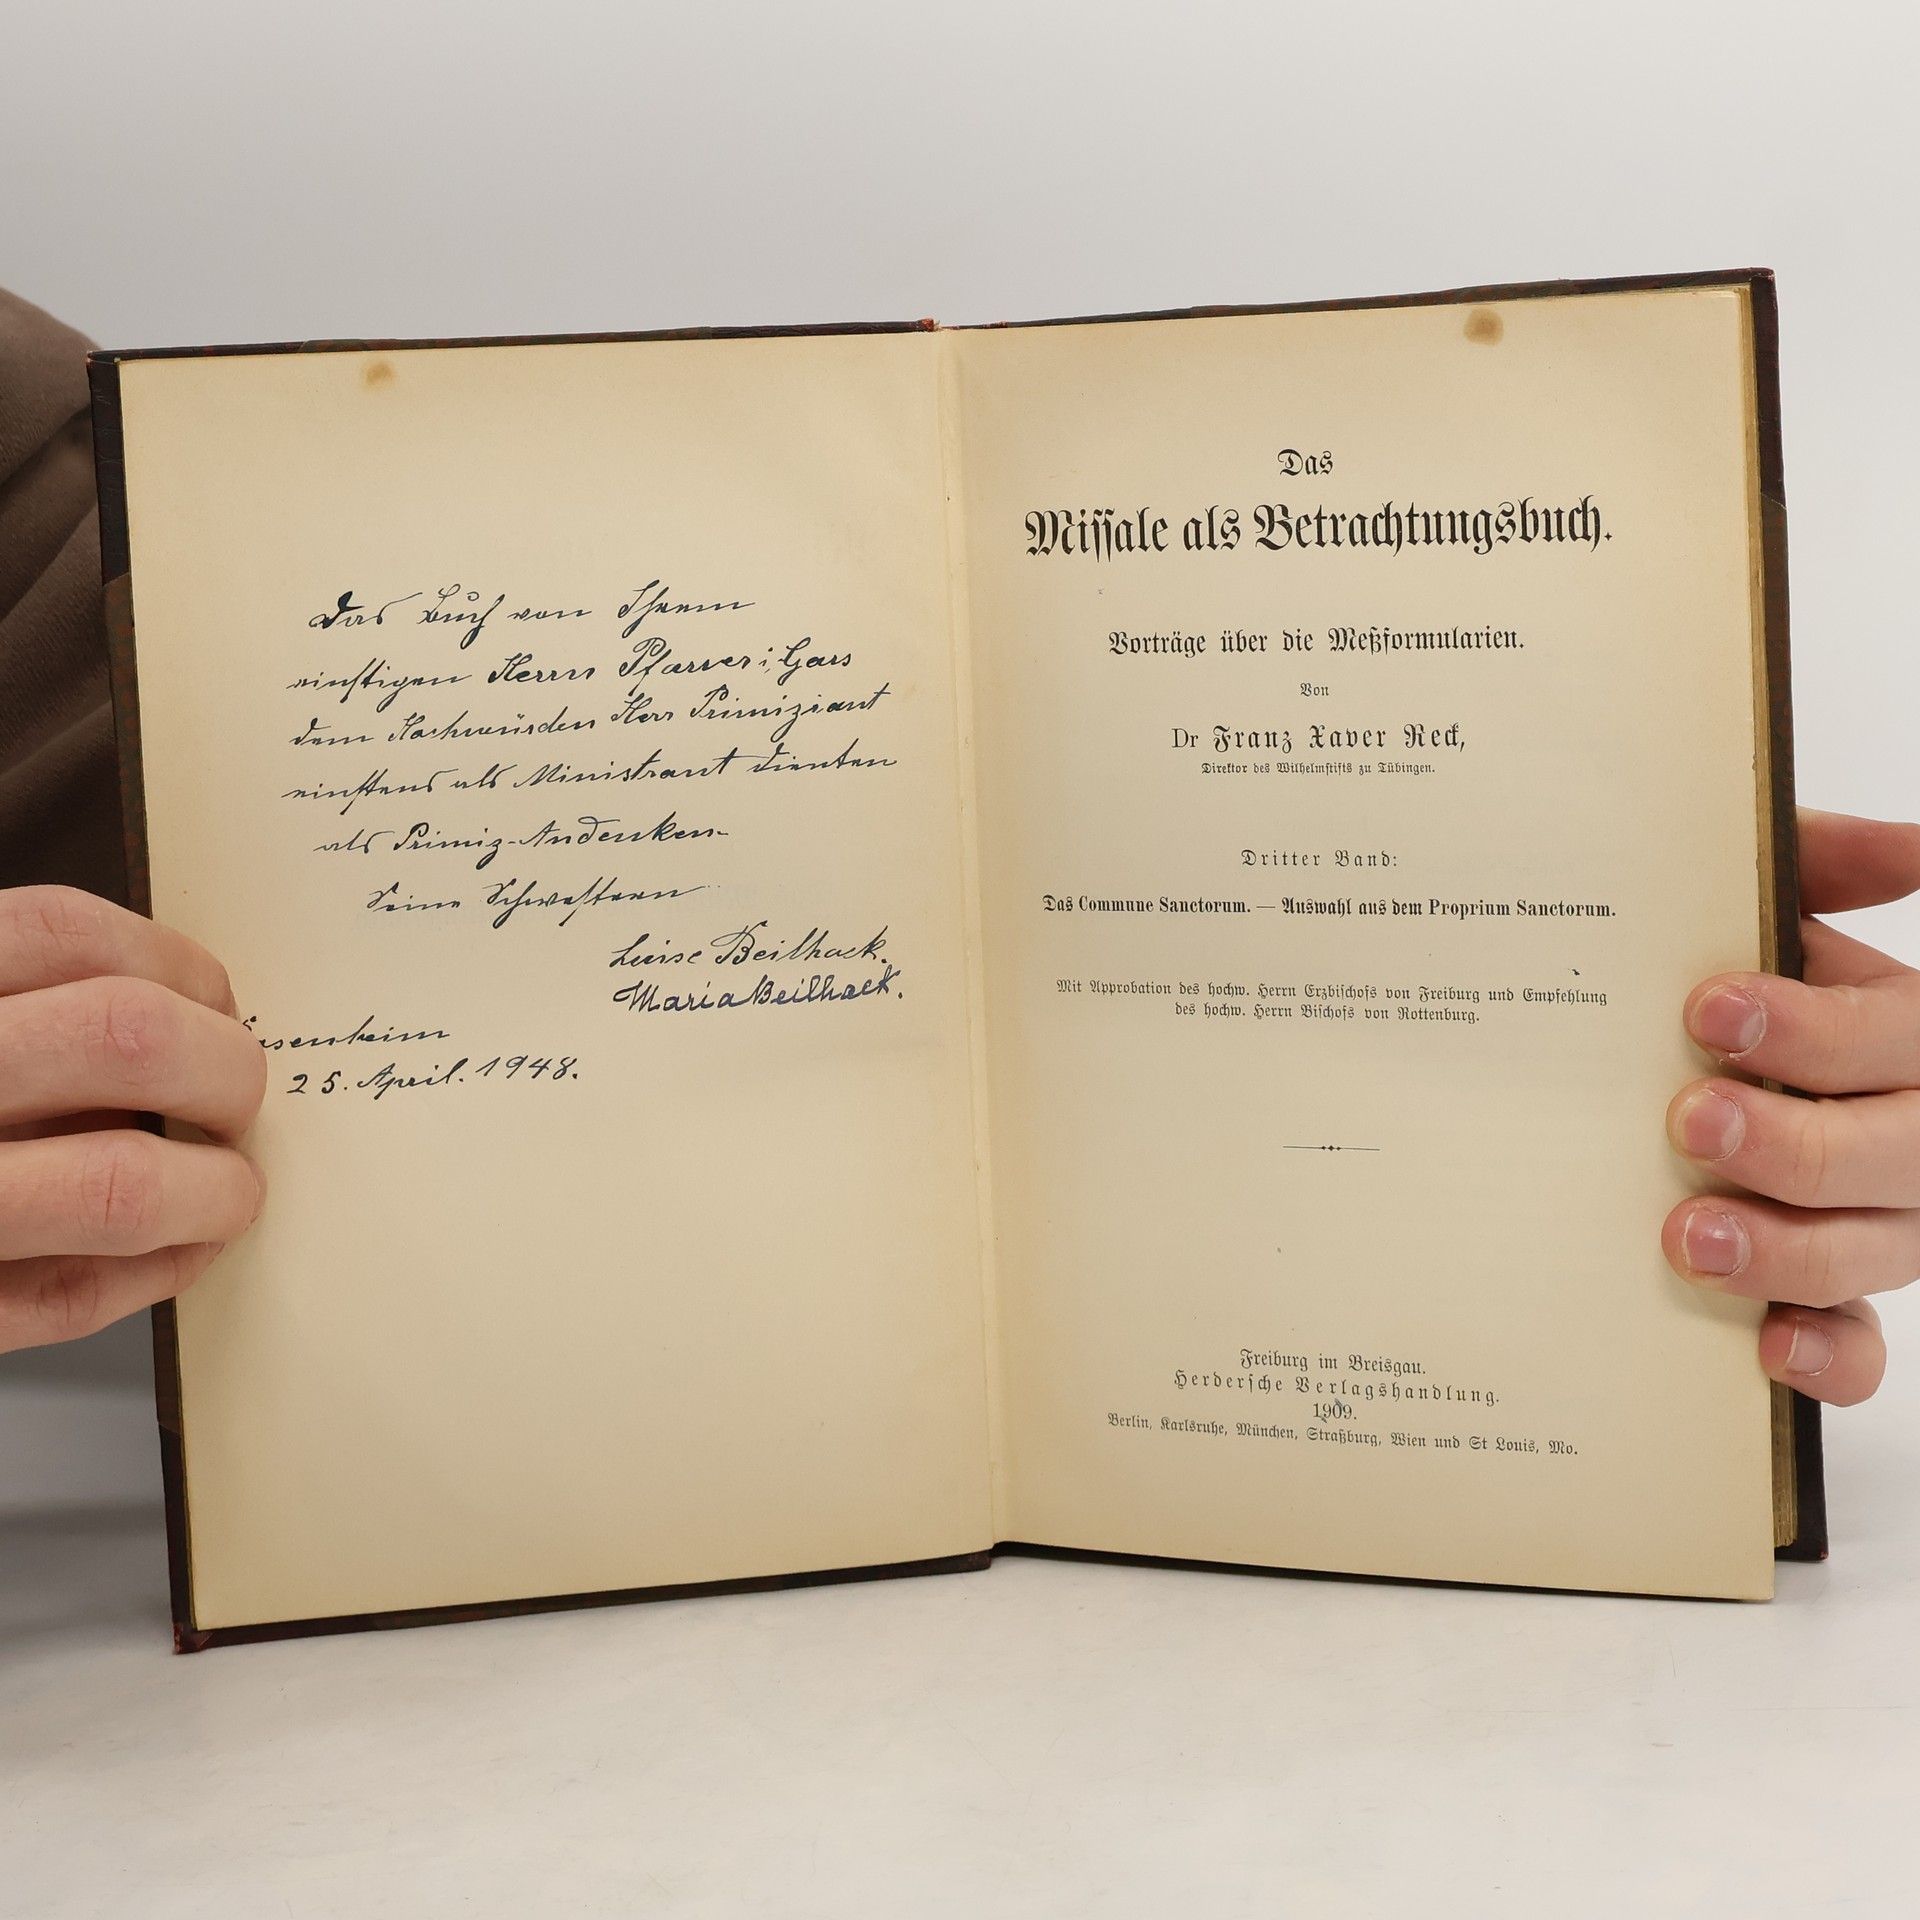 Das Buch von Ihrem
einstigen Herrn Pfarrer i. Gars
dem Hochwürden Herr Primiziant
einstens als Ministrant dienten
als Primiz-Andenken
Seine Schwestern
Luise Beilhack.
Maria Beilhack.
senheim
25. April. 1948.
Das
Missale als Betrachtungsbuch.
Vorträge über die Meßformularien.
Von
Dr Franz Xaver Reck,
Direktor des Wilhelmstifts zu Tübingen.
Dritter Band:
Das Commune Sanctorum. — Auswahl aus dem Proprium Sanctorum.
Mit Approbation des hochw. Herrn Erzbischofs von Freiburg und Empfehlung
des hochw. Herrn Bischofs von Rottenburg.
Freiburg im Breisgau.
Herdersche Verlagshandlung.
1909.
Berlin, Karlsruhe, München, Straßburg, Wien und St Louis, Mo.